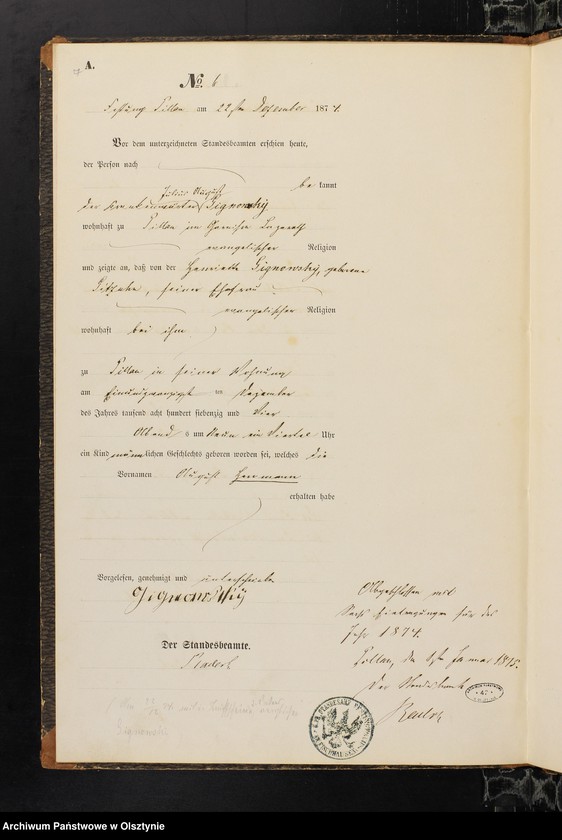 A.
No. 6
Festung Pillau am 22ten Dezember 1874.
Vor dem unterzeichneten Standesbeamten erschien heute,
der Person nach
be kannt
Julius August
der Gignowsky
wohnhaft zu Pillau im Garnison Lazareth
evangelischer Religion
und zeigte an, daß von der Henriette Gignowsky, geborene
seiner Ehefrau
evangelischer Religion
wohnhaft bei ihm
zu Pillau in seiner Wohnung
am einundzwanzigsten ten Dezember
des Jahres tausend acht hundert siebenzig und Vier
Abend s um Neun ein Viertel Uhr
ein Kind männlichen Geschlechts geboren worden sei, welches die
Vornamen August Herrmann
erhalten habe
Vorgelesen, genehmigt und unterschrieben
Gignowsky
Der Standesbeamte.
Abgeschlossen mit
Sechs Eintragungen für das
Jahr 1874.
Pillau, den Januar 1875.
Der Standesbeamte
Gignowski
Archiwum Państwowe w Olsztynie